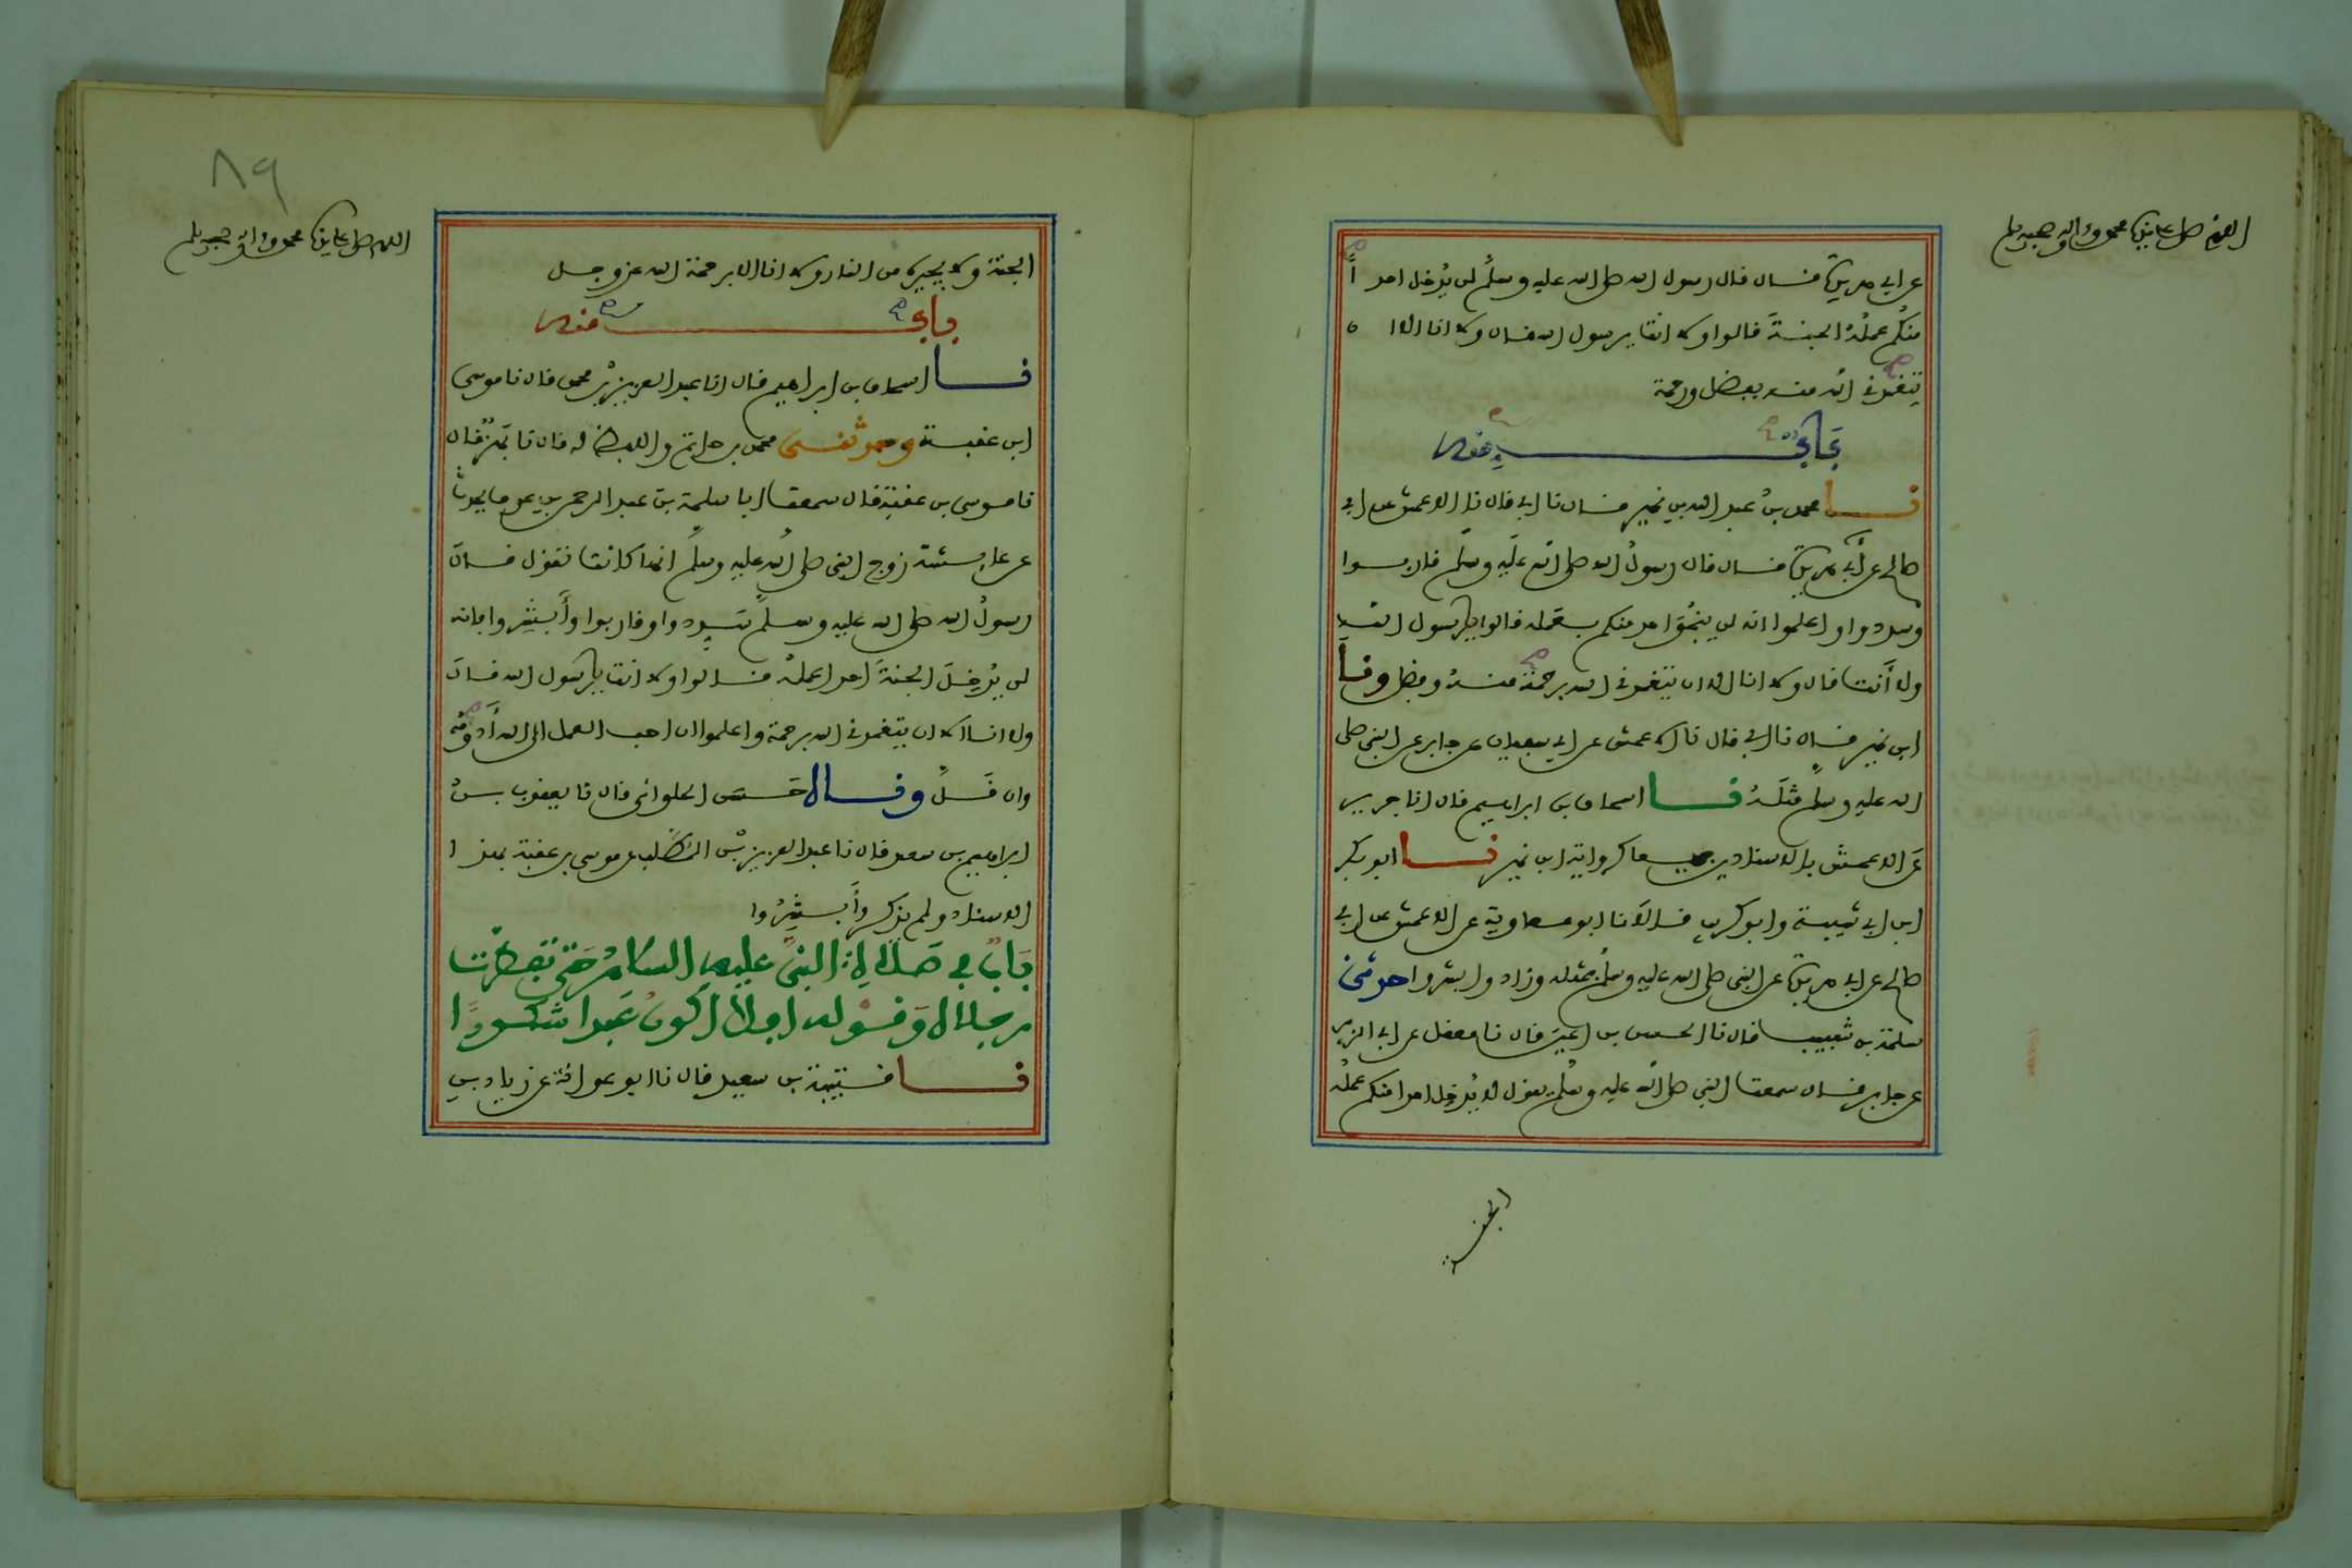 اللهم صل على نبينا محمد وآله وصحبه وسلم
عن ابي هريرة قال قال رسول الله صلى الله عليه وسلم لن يدخل احدا
منكم عمله الجنة قالوا ولا انت يرسول الله قال ولا انا الا ا
يتغمدني الله منه بفضل ورحمة
باب منه
نا محمد بن عبد الله بن نمير قال نا ابي قال نا الاعمش عن ابي
صالح عن أبي هريرة قال قال رسول الله صلى الله عليه وسلم قاربوا
وسددوا واعلموا انه لن ينجو احد منكم بعمله قالوا يا رسول الله
ولا أنت قال ولا انا الا ان يتغمدني الله برحمة منه وفضل ونا
ابن نمير قال نا ابي قال نا الاعمش عن ابي سفيان عن جابر عن النبي صلى
الله عليه وسلم مثله نا اسحاق بن ابراهيم قال انا جرير
عن الاعمش بالاسنادين جميعا كرواية ابن نمير نا ابو بكر
ابن ابي شيبة وابو كريب قالا نا ابو معاوية عن الاعمش عن ابي
صالح عن ابي هريرة عن النبي صلى الله عليه وسلم بمثله وزاد وابشروا حدثني
سلمة بن شبيب قال نا الحسن بن اعين قال نا معقل عن ابي الزبير
عن جابر قال سمعت النبي صلى الله عليه وسلم يقول لا يدخل احدا منكم عمله
الجنة
٨٩
اللهم صل على نبينا محمد وآله وصحبه وسلم
الجنة ولا يجيره من النار ولا انا الا برحمة الله عز وجل
باب منه
نا اسحاق بن ابراهيم قال انا عبد العزيز بن محمد قال نا موسى
ابن عقبة وحدثني محمد بن حاتم واللفظ له قال نا بهز قال
نا موسى بن عقبة قال سمعت ابا سلمة بن عبد الرحمن بن عوف يحدث
عن عايشة زوج النبي صلى الله عليه وسلم انها كانت تقول قال
رسول الله صلى الله عليه وسلم سددوا وقاربوا وأبشروا فانه
لن يدخل الجنة احدا عمله قالوا ولا انت يا رسول الله قال
ولا انا الا ان يتغمدني الله برحمة واعلموا ان احب العمل الى الله أدومه
وان قل وقال حسن الحلواني قال نا يعقوب بن
ابراهيم بن سعد قال نا عبد العزيز بن المطلب عن موسى بن عقبة بهذا
الاسناد ولم يذكر وأبشروا
باب في صلاة النبي عليه السلام حتى تفطرت
رجلاه وقوله افلا اكون عبدا شكورا
نا قتيبة بن سعيد قال نا ابو عوانة عن زياد بن